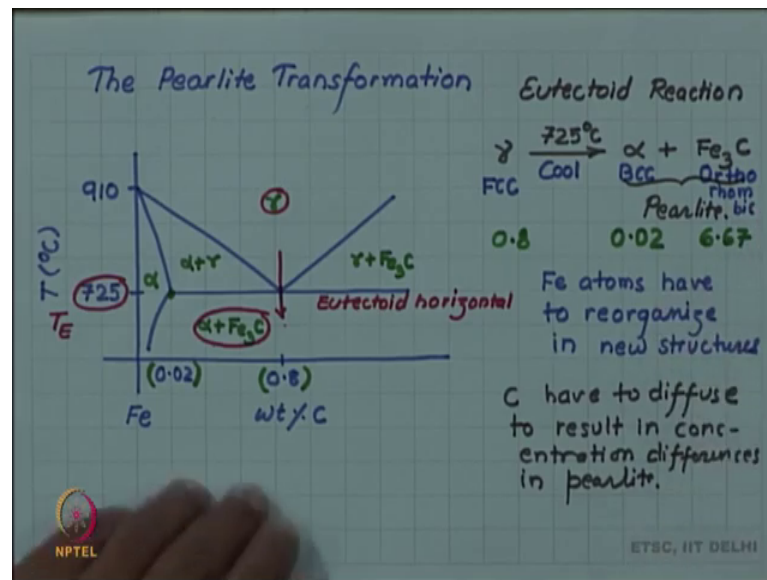 The Pearlite Transformation
Eutectoid Reaction
γ 725°C α + Fe₃C
Cool
FCC BCC Ortho
rhom
bic
Pearlite.
0.8 0.02 6.67
Fe atoms have
to reorganize
in new structures
C have to diffuse
to result in conc-
entration differences
in pearlite.
910
γ
T (°C)
α α+γ γ+Fe₃C
725
T_E
Eutectoid horizontal
α+Fe₃C
(0.02) (0.8)
Fe wt % C
NPTEL
ETSC, IIT DELHI